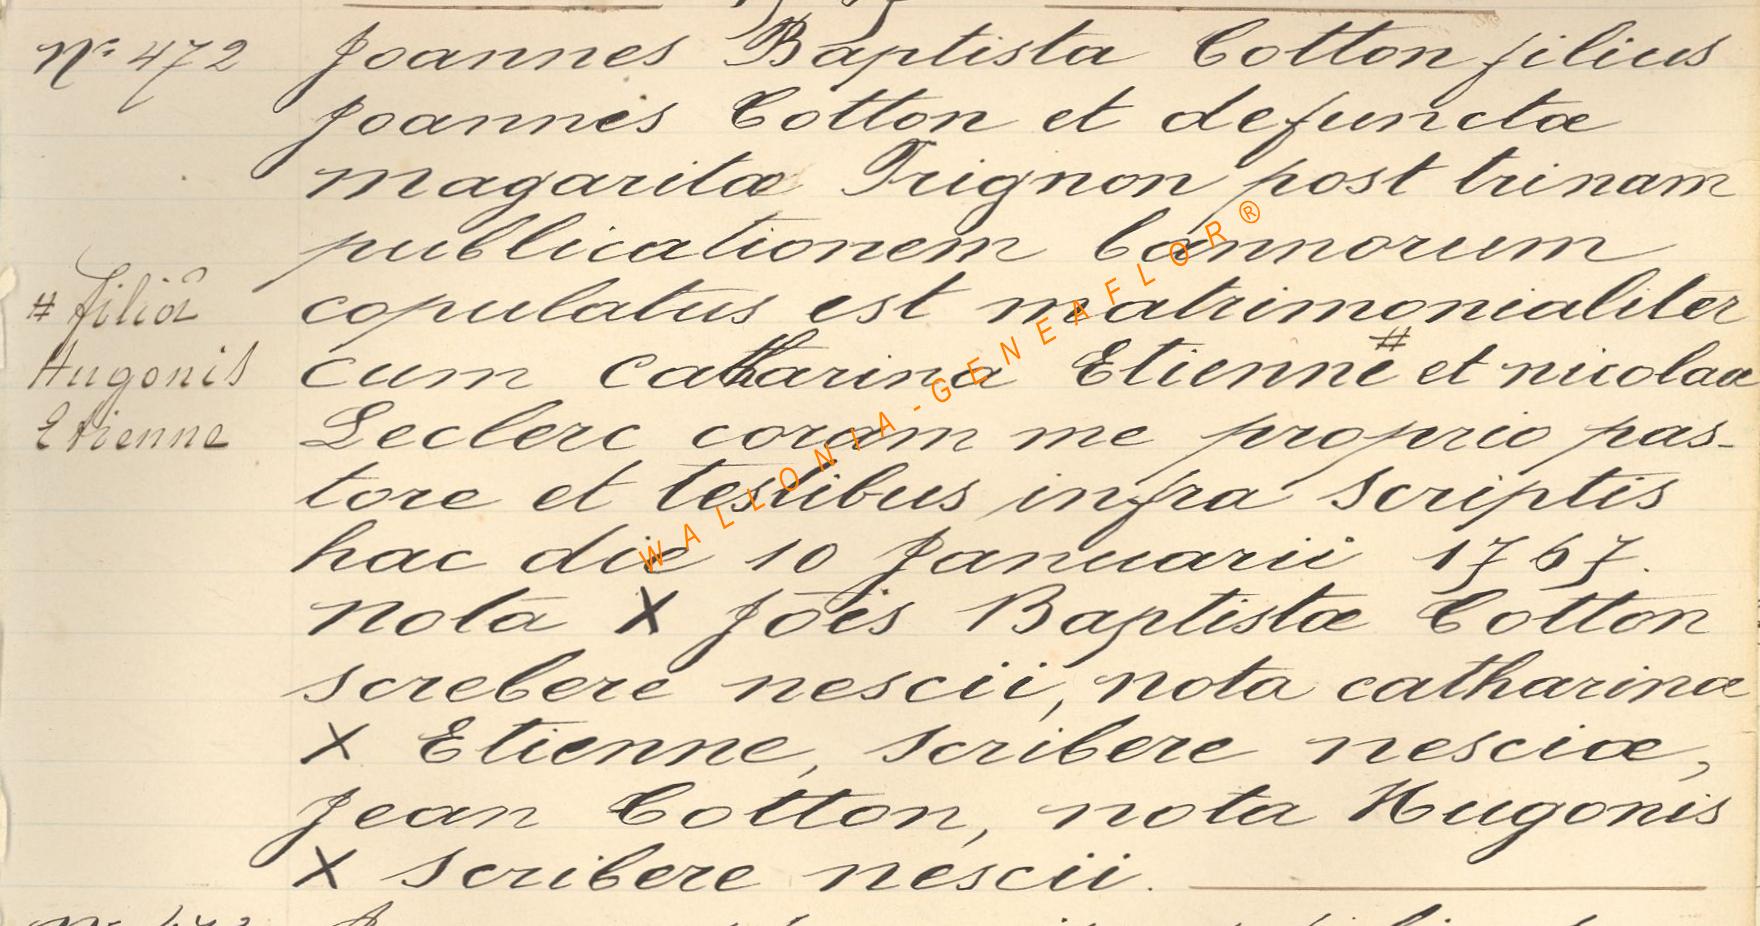 N° 472 Joannes Baptista Cotton filius
Joannis Cotton et defunctæ
Magaritæ Trignon post trinam
publicationem bannorum
copulatus est matrimonialiter
cum Catharina Etienne # et nicolaæ
Leclerc coram me proprio pas-
tore et testibus infra scriptis
hac die 10 Januarii 1767.
Nota X Jōis Baptistæ Cotton
screbere nescii, nota catharinæ
X Etienne, scribere nesciæ,
Jean Cotton, nota Hugonis
X scribere nescii.
# filiâ
Hugonis
Etienne
WALLONIA-GENEAFLOR®